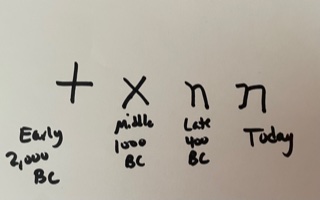 + x n ת
Early
2,000
BC
Middle
1000
BC
Late
400
BC
Today